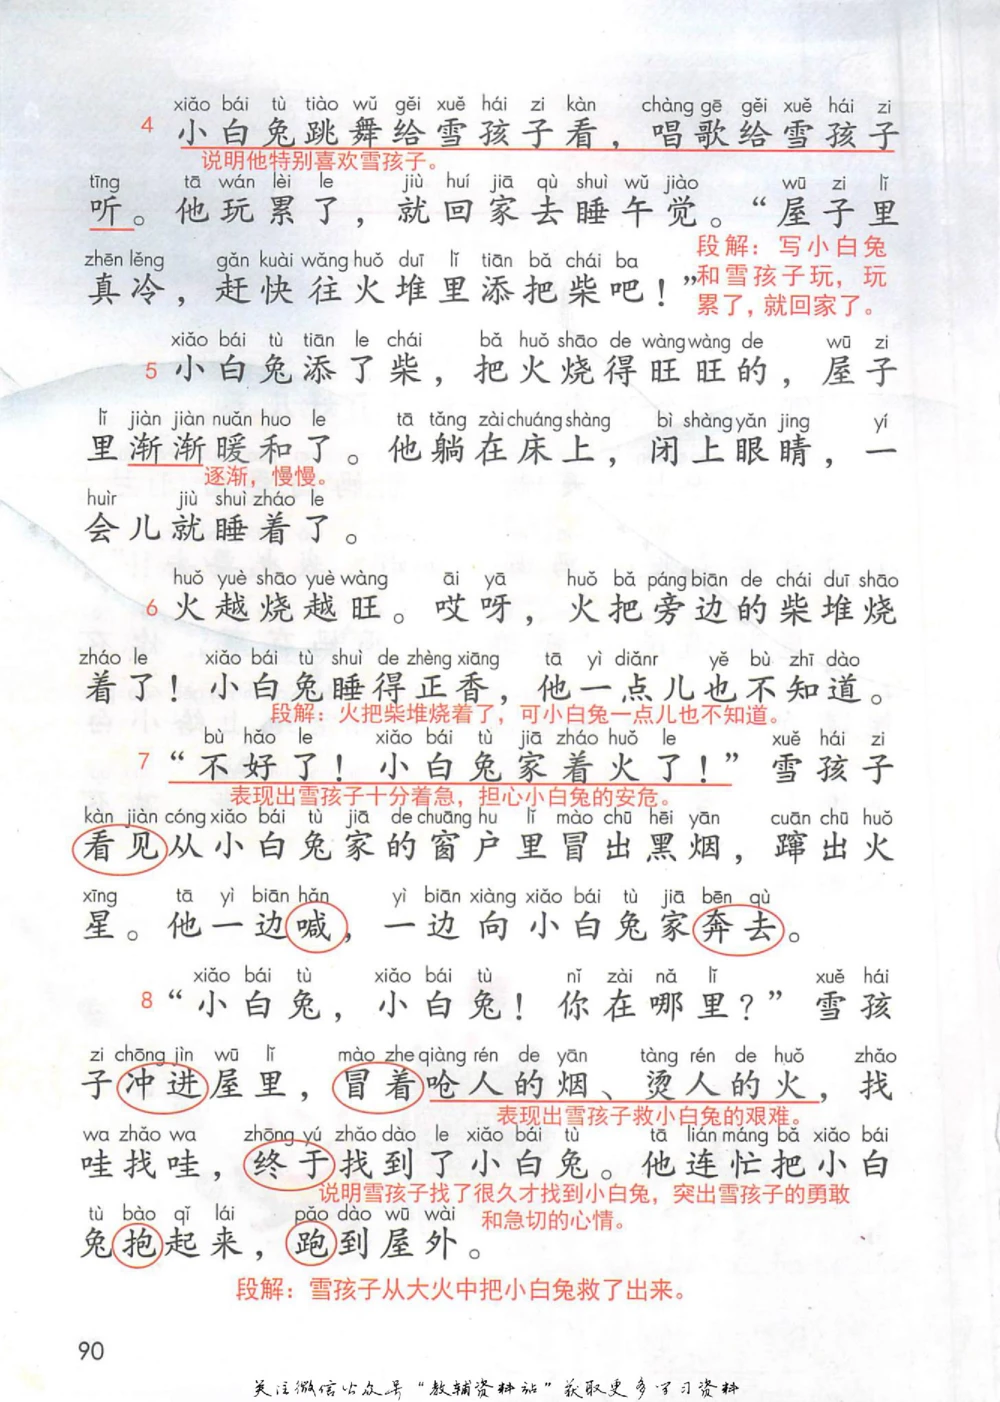 xiǎo bái tù tiào wǔ gěi xuě hái zi kàn chàng gē gěi xuě hái zi
4 小白兔跳舞给雪孩子看，唱歌给雪孩子
说明他特别喜欢雪孩子。
tīng tā wán lèi le jiù huí jiā qù shuì wǔ jiào wū zi lǐ
听。他玩累了，就回家去睡午觉。“屋子里
段解：写小白兔
zhēn lěng gǎn kuài wǎng huǒ duī lǐ tiān bǎ chái ba
和雪孩子玩，玩
真冷，赶快往火堆里添把柴吧！”
累了，就回家了。
xiǎo bái tù tiān le chái bǎ huǒ shāo de wàng wàng de wū zi
5 小白兔添了柴，把火烧得旺旺的，屋子
lǐ jiàn jiàn nuǎn huo le tā tǎng zài chuáng shàng bì shàng yǎn jing yí
里渐渐暖和了。他躺在床上，闭上眼睛，一
逐渐，慢慢。
huìr jiù shuì zháo le
会儿就睡着了。
huǒ yuè shāo yuè wàng āi yā huǒ bǎ páng biān de chái duī shāo
6 火越烧越旺。哎呀，火把旁边的柴堆烧
zháo le xiǎo bái tù shuì de zhèng xiāng tā yì diǎnr yě bù zhī dào
着了！小白兔睡得正香，他一点儿也不知道。
段解：火把柴堆烧着了，可小白兔一点儿也不知道。
bù hǎo le xiǎo bái tù jiā zháo huǒ le xuě hái zi
7 “不好了！小白兔家着火了！”雪孩子
表现出雪孩子十分着急，担心小白兔的安危。
kàn jiàn cóng xiǎo bái tù jiā de chuāng hu lǐ mào chū hēi yān cuān chū huǒ
看见从小白兔家的窗户里冒出黑烟，蹿出火
xīng tā yì biān hǎn yì biān xiàng xiǎo bái tù jiā bēn qù
星。他一边喊，一边向小白兔家奔去。
xiǎo bái tù xiǎo bái tù nǐ zài nǎ lǐ xuě hái
8 “小白兔，小白兔！你在哪里？”雪孩
zi chōng jìn wū lǐ mào zhe qiàng rén de yān tàng rén de huǒ zhǎo
子冲进屋里，冒着呛人的烟、烫人的火，找
表现出雪孩子救小白兔的艰难。
wa zhǎo wa zhōng yú zhǎo dào le xiǎo bái tù tā lián máng bǎ xiǎo bái
哇找哇，终于找到了小白兔。他连忙把小白
说明雪孩子找了很久才找到小白兔，突出雪孩子的勇敢
tù bào qǐ lái pǎo dào wū wài
和急切的心情。
兔抱起来，跑到屋外。
段解：雪孩子从大火中把小白兔救了出来。
90
关注微信公众号“教辅资料站”获取更多学习资料